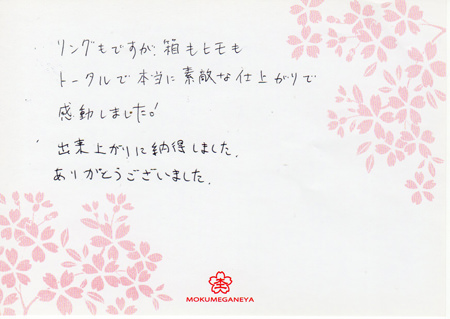 リングもですが、箱もヒモも
トータルで本当に素敵な仕上がりで
感動しました!
出来上がりに納得しました。
ありがとうございました。
MOKUMEGANEYA